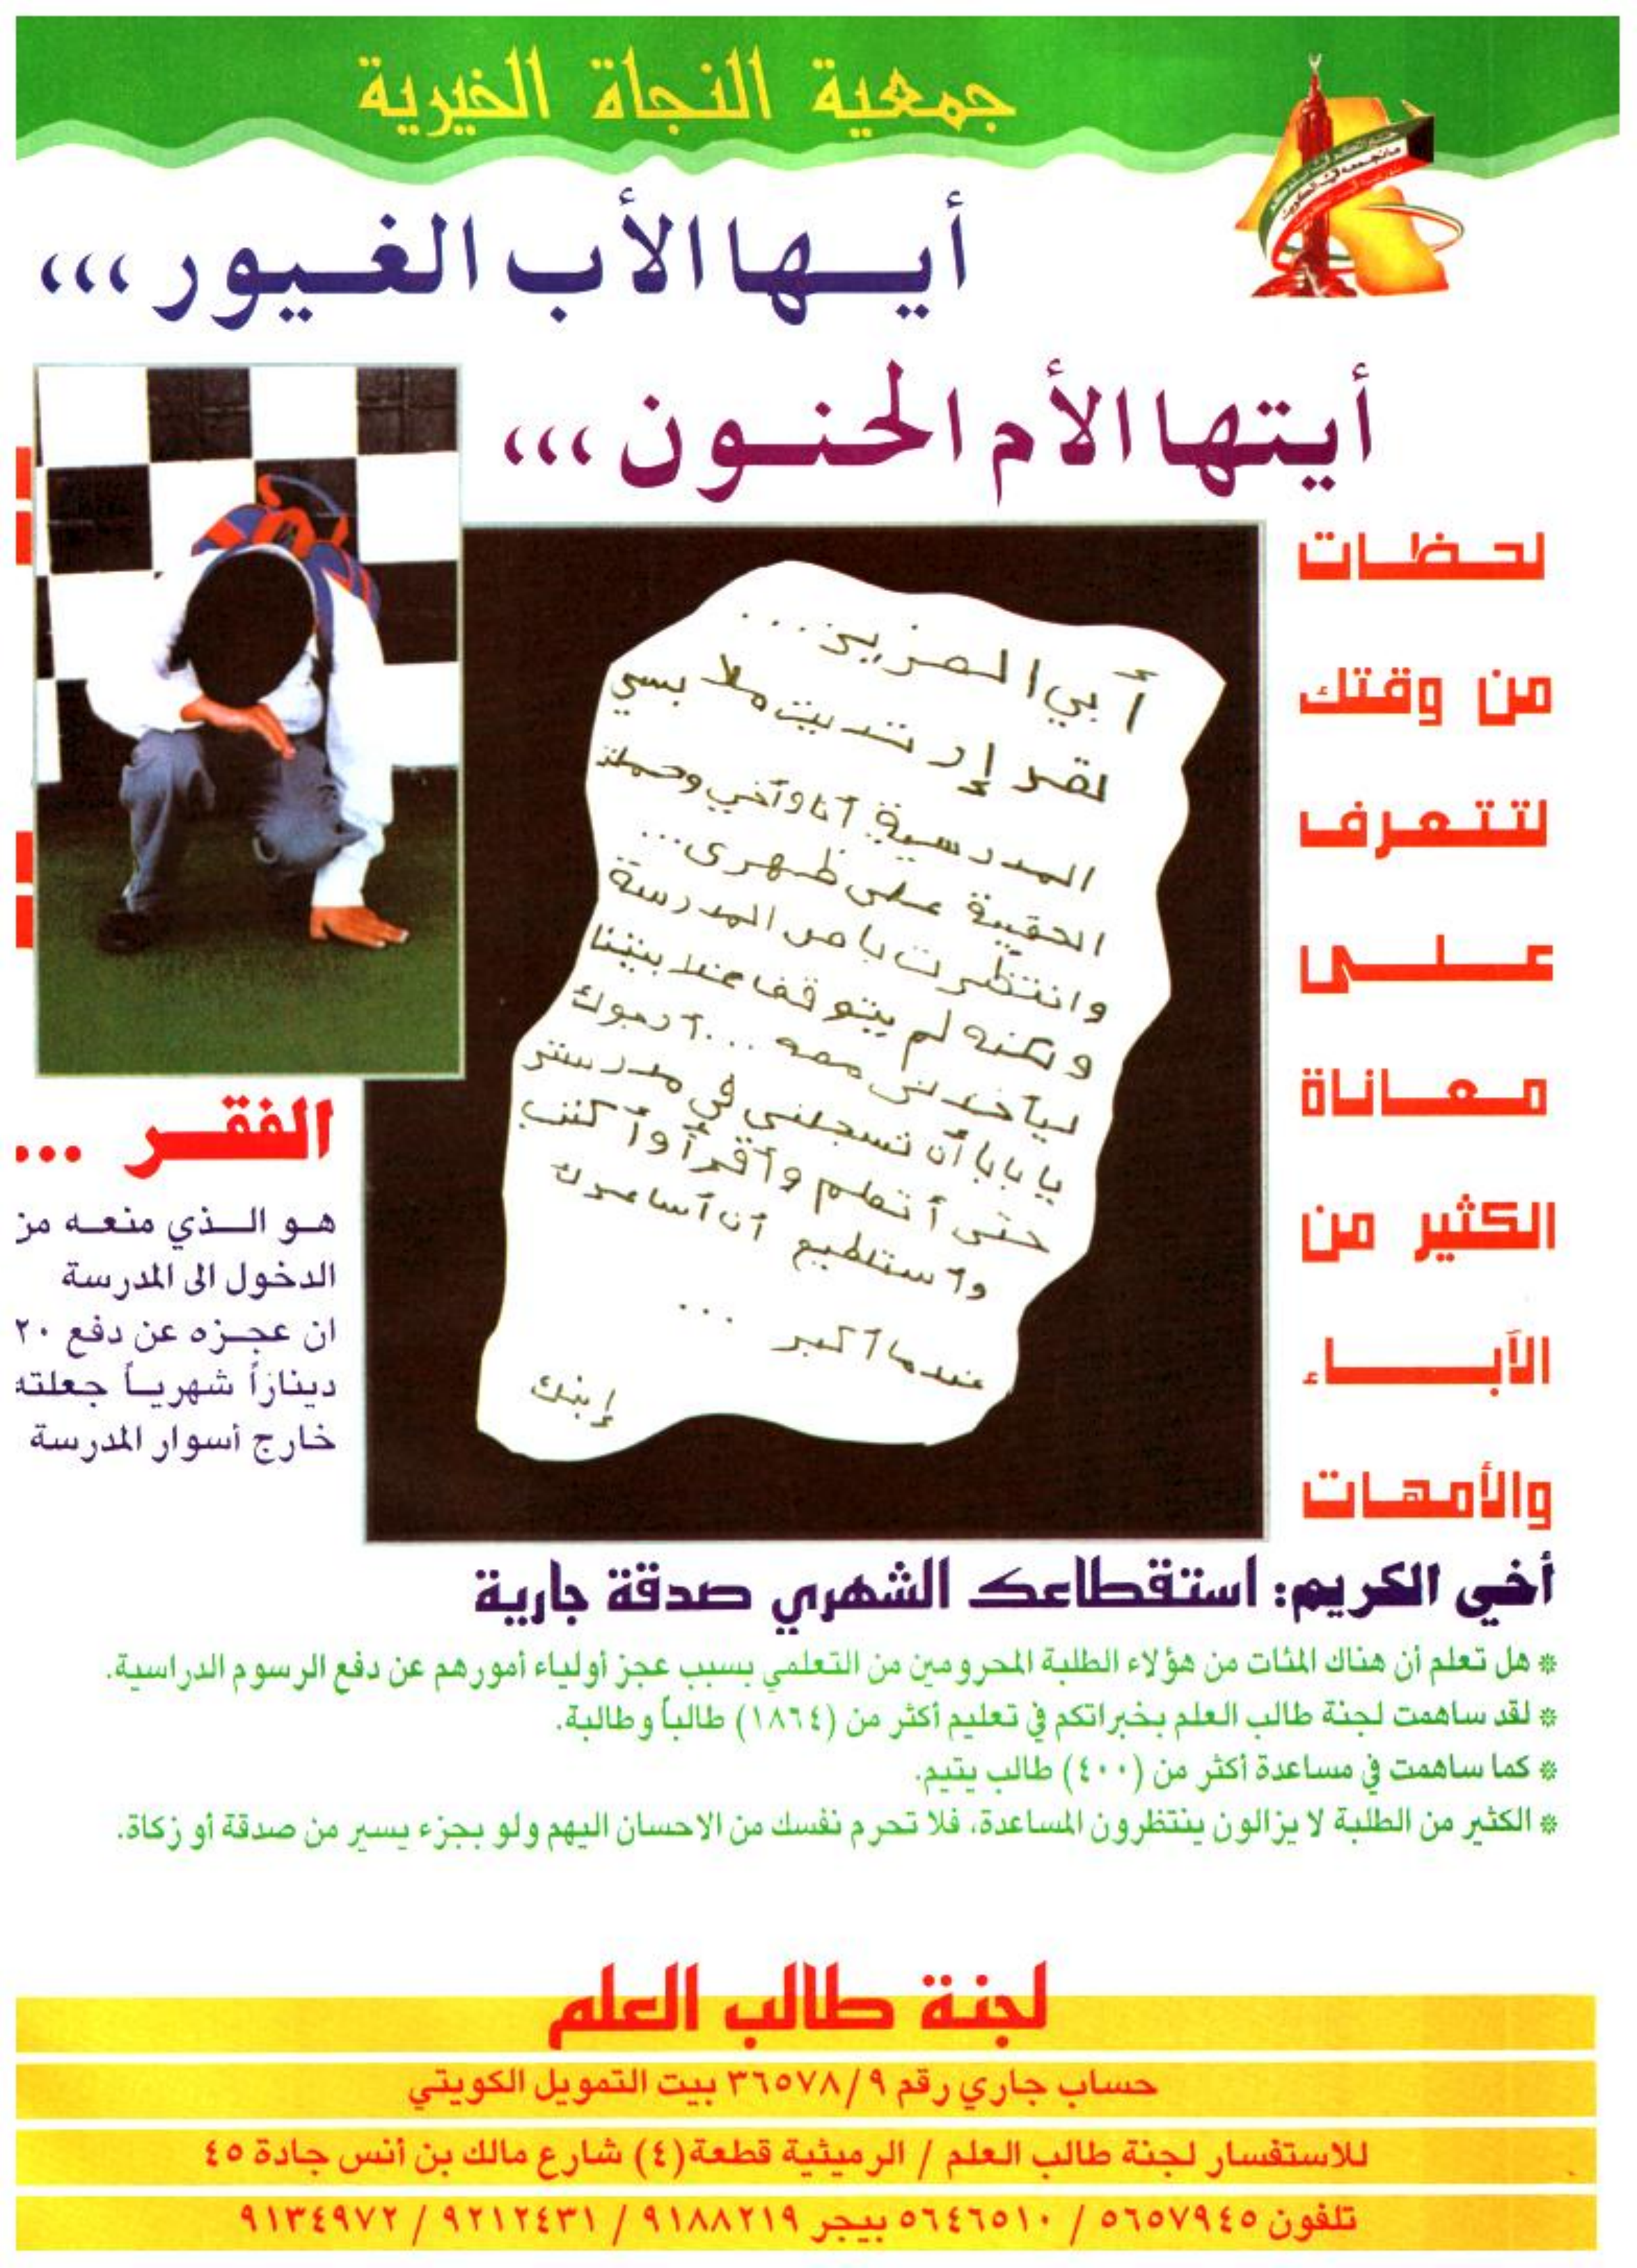 جمعية النجاة الخيرية
أيها الأب الغيور ,,,
أيتها الأم الحنون ,,,
لحظات
من وقتك
لتتعرف
على
معاناة
الكثير من
الآباء
والأمهات
أبي العزيز ...
لقد إرتديت ملابسي
المدرسية أنا وأخي وحملت
الحقيبة على ظهري ...
وانتظرت باص المدرسة
ولكنه لم يتوقف عند بيتنا
ليأخذني معه ... أرجوك
يا بابا أن تسجلني في مدرستي
حتى أتعلم وأقرأ وأكتب
وأستطيع أن أساعدك
عندما أكبر ...
إبنك
الفقر ...
هو الذي منعه من
الدخول الى المدرسة
ان عجزه عن دفع ٢٠
ديناراً شهرياً جعلته
خارج أسوار المدرسة
أخي الكريم: استقطاعك الشهري صدقة جارية
* هل تعلم أن هناك المئات من هؤلاء الطلبة المحرومين من التعلمي بسبب عجز أولياء أمورهم عن دفع الرسوم الدراسية.
* لقد ساهمت لجنة طالب العلم بخبراتكم في تعليم أكثر من (١٨٦٤) طالباً وطالبة.
* كما ساهمت في مساعدة أكثر من (٤٠٠) طالب يتيم.
* الكثير من الطلبة لا يزالون ينتظرون المساعدة، فلا تحرم نفسك من الاحسان اليهم ولو بجزء يسير من صدقة أو زكاة.
لجنة طالب العلم
حساب جاري رقم ٣٦٥٧٨/٩ بيت التمويل الكويتي
للاستفسار لجنة طالب العلم / الرميثية قطعة (٤) شارع مالك بن أنس جادة ٤٥
تلفون ٥٦٥٧٩٤٥ / ٥٦٤٦٥١٠ بيجر ٩١٨٨٢١٩ / ٩٢١٢٤٣١ / ٩١٣٤٩٧٢